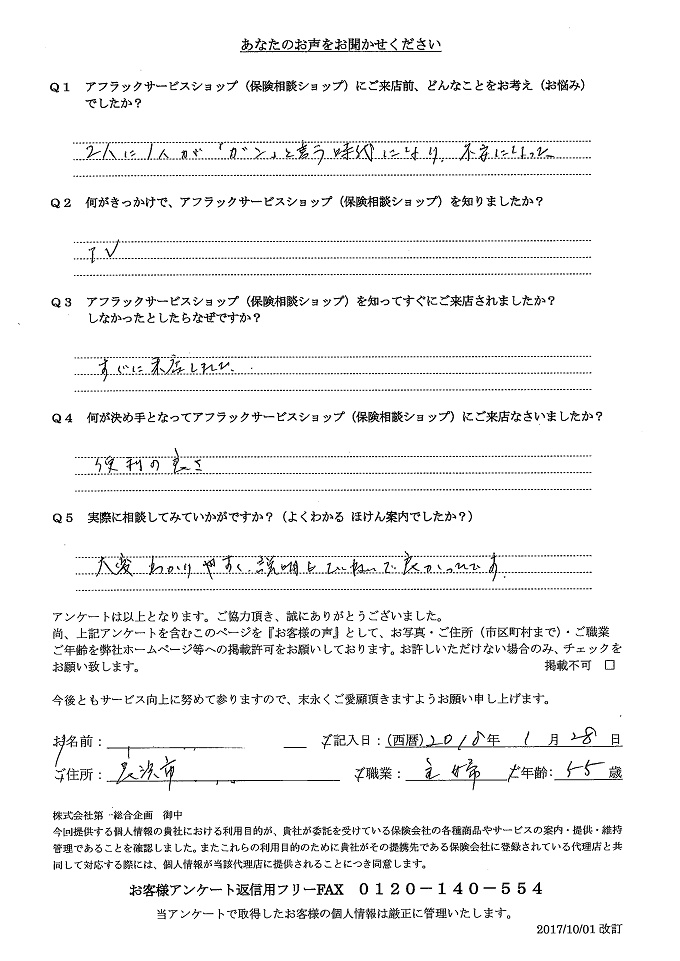 あなたのお声をお聞かせください
Q1 アフラックサービスショップ(保険相談ショップ)にご来店前、どんなことをお考え(お悩み)
でしたか?
2人に1人が「ガン」と言う時代になり、不安になった
Q2 何がきっかけで、アフラックサービスショップ(保険相談ショップ)を知りましたか?
TV
Q3 アフラックサービスショップ(保険相談ショップ)を知ってすぐにご来店されましたか?
しなかったとしたらなぜですか?
すぐに来店しました.
Q4 何が決め手となってアフラックサービスショップ(保険相談ショップ)にご来店なさいましたか?
便利の良さ
Q5 実際に相談してみていかがですか?(よくわかる ほけん案内でしたか?)
大変 わかりやすく、説明もていねいで良かったです.
アンケートは以上となります。ご協力頂き、誠にありがとうございました。
尚、上記アンケートを含むこのページを『お客様の声』として、お写真・ご住所(市区町村まで)・ご職業
ご年齢を弊社ホームページ等への掲載許可をお願いしております。お許しいただけない場合のみ、チェックを
お願い致します。 掲載不可 □
今後ともサービス向上に努めて参りますので、末永くご愛顧頂きますようお願い申し上げます。
お名前: ご記入日:(西暦)2018年 1月 28日
ご住所: 長浜市 ご職業: 主婦 ご年齢: 55歳
株式会社第一総合企画 御中
今回提供する個人情報の貴社における利用目的が、貴社が委託を受けている保険会社の各種商品やサービスの案内・提供・維持
管理であることを確認しました。またこれらの利用目的のために貴社がその提携先である保険会社に登録されている代理店と共
同して対応する際には、個人情報が当該代理店に提供されることにつき同意します。
お客様アンケート返信用フリーFAX 0120-140-554
当アンケートで取得したお客様の個人情報は厳正に管理いたします。
2017/10/01 改訂